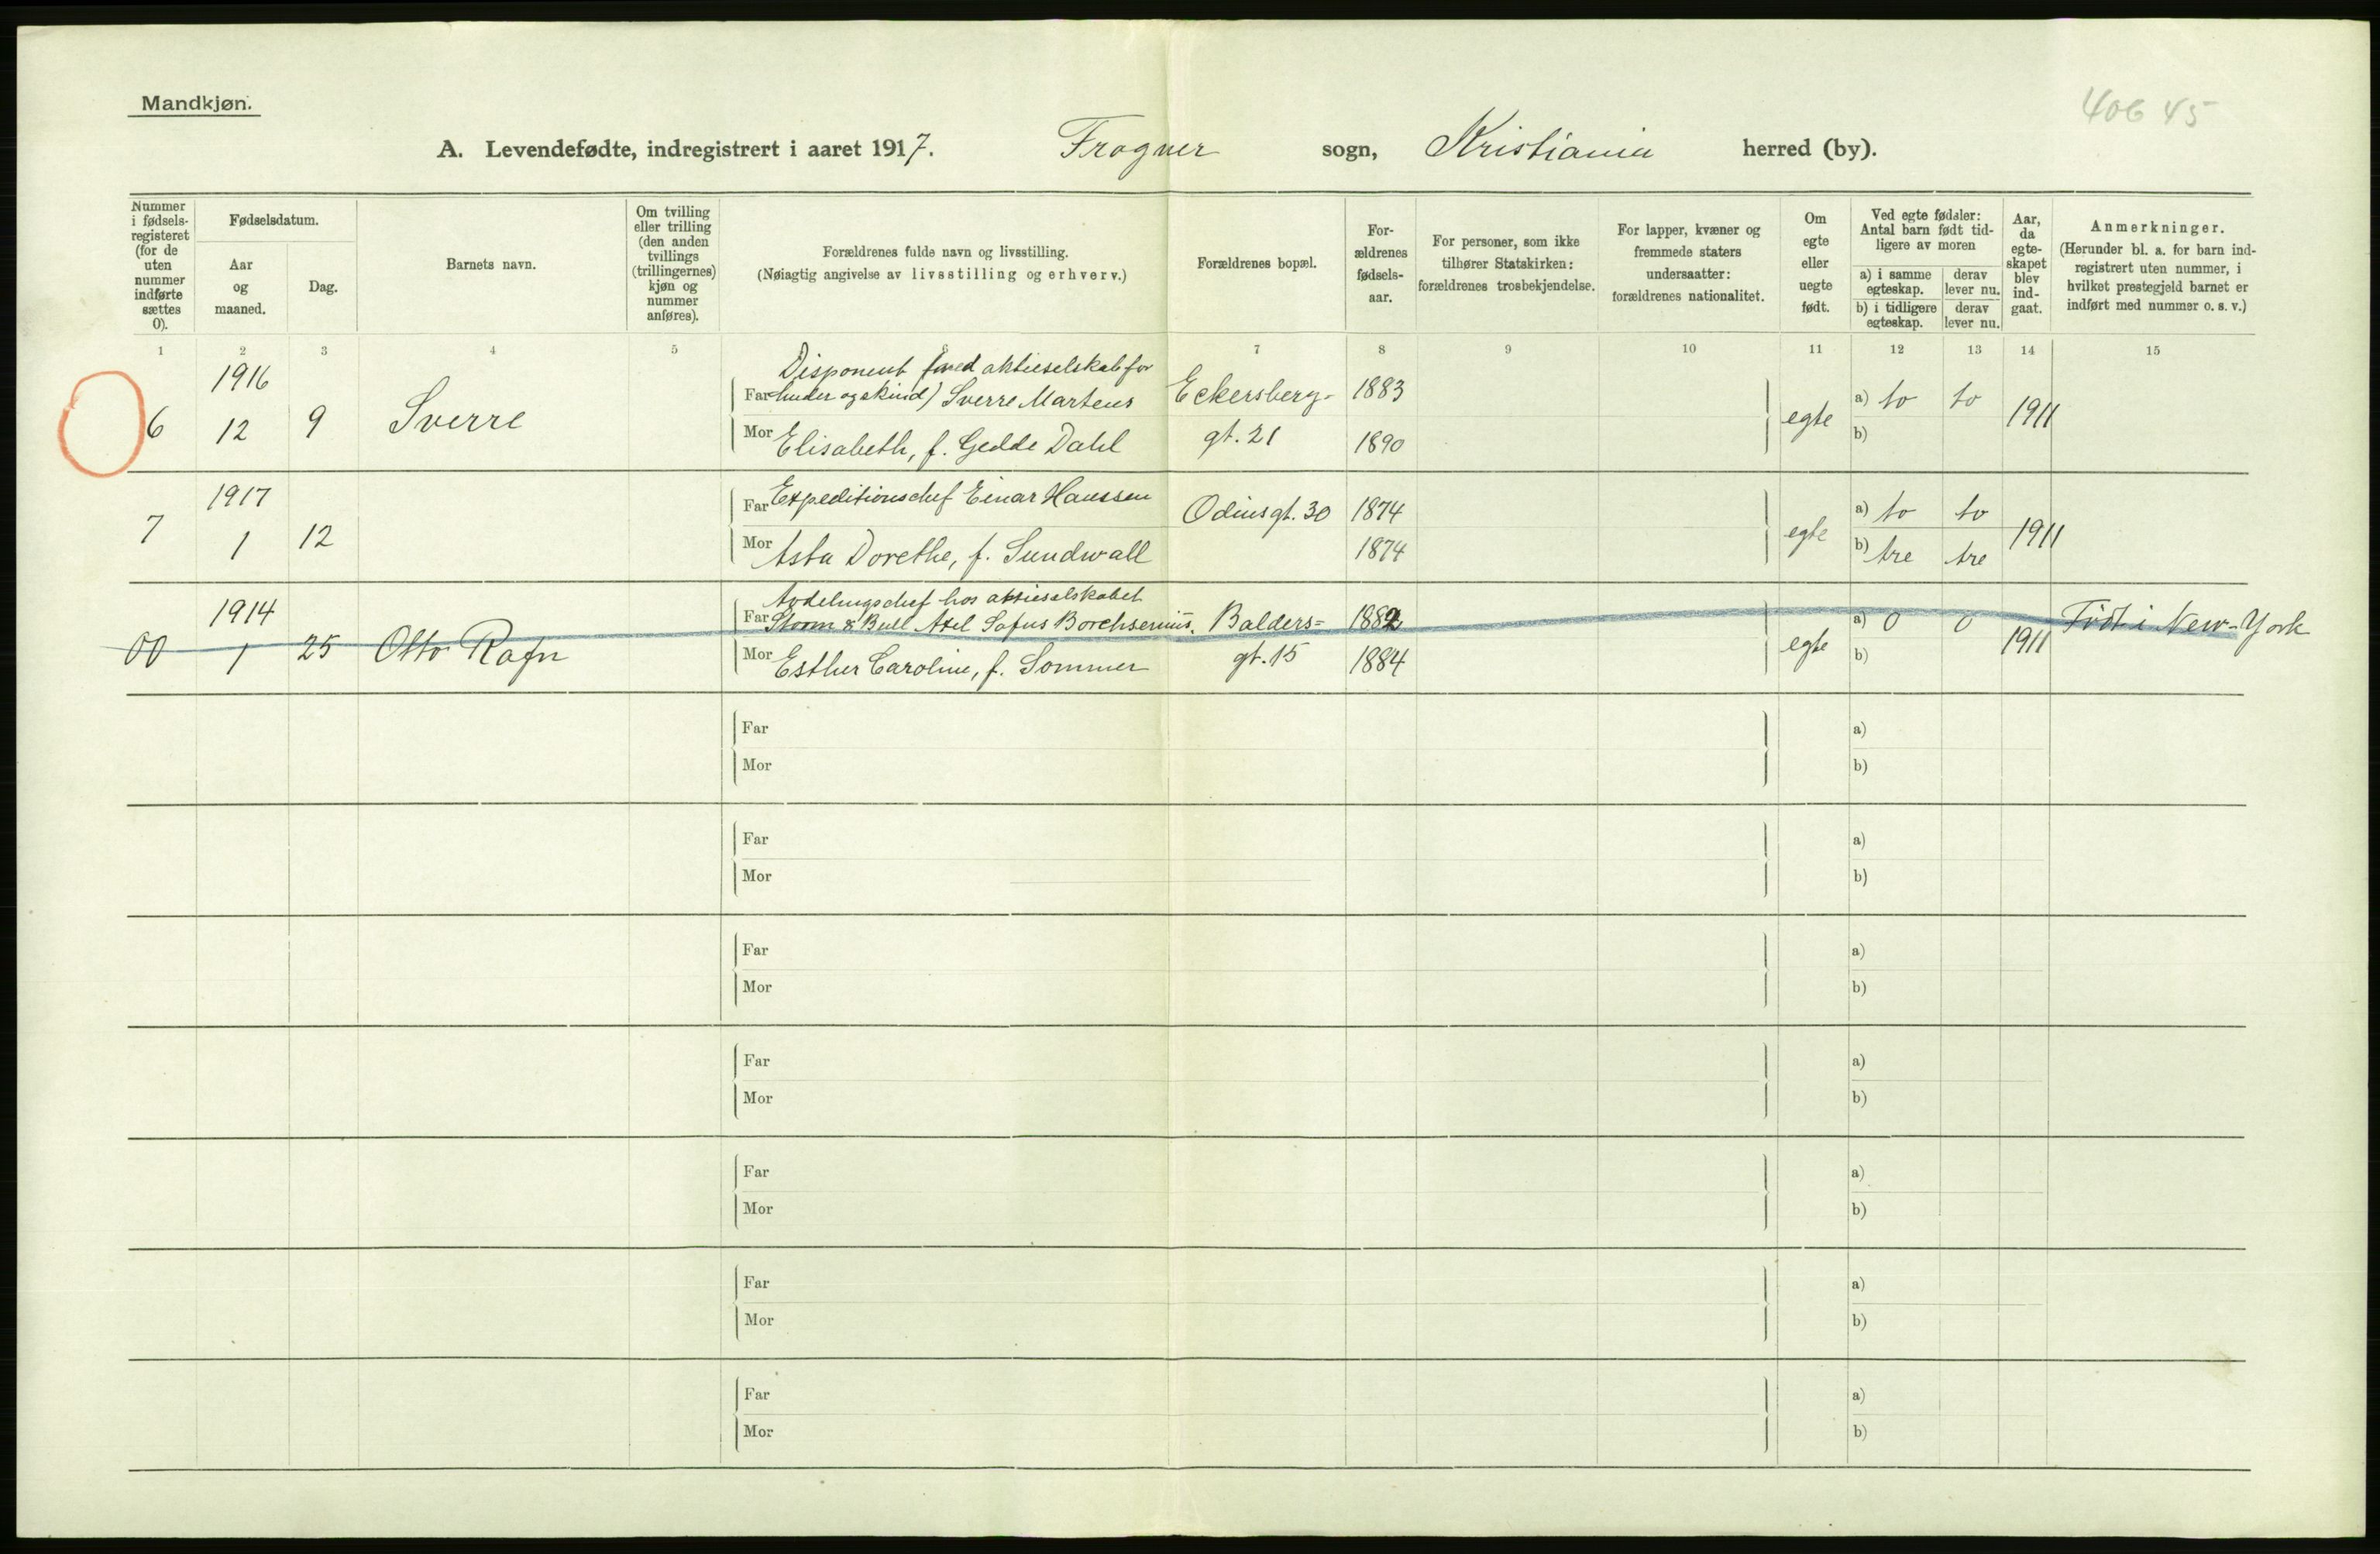 Mandkjøn.
406 45
A. Levendefødte, indregistrert i aaret 1917. Frogner sogn, Kristiania herred (by).
Nummer i fødsels-registeret (for de uten nummer indførte sættes 0).
Fødselsdatum.
Aar og maaned.
Dag.
Barnets navn.
Om tvilling eller trilling (den anden tvillings (trillingernes) kjøn og nummer anføres).
Forældrenes fulde navn og livsstilling.
(Nøiagtig angivelse av livsstilling og erhverv.)
Forældrenes bopæl.
For-ældrenes fødsels-aar.
For personer, som ikke tilhører Statskirken: forældrenes trosbekjendelse.
For lapper, kvæner og fremmede staters undersaatter: forældrenes nationalitet.
Om egte eller uegte født.
Ved egte fødsler: Antal barn født tid-ligere av moren
a) i samme egteskap.
derav lever nu.
b) i tidligere egteskap.
derav lever nu.
Aar, da egte-skapet blev ind-gaat.
Anmerkninger.
(Herunder bl. a. for barn ind-registrert uten nummer, i hvilket prestegjeld barnet er indført med nummer o. s. v.)
1 2 3 4 5 6 7 8 9 10 11 12 13 14 15
6 1916 12 9 Sverre
Disponent (ved aktieselskab for
Far huder og skind) Sverre Martens Eckersberg- 1883
Mor Elisabeth, f. Gedde Dahl gt. 21 1890
egte a) to to 1911
b)
7 1917 1 12
Far Expeditionschef Einar Hanssen Odinsgt. 30 1874
Mor Asta Dorethe, f. Sundwall 1874
egte a) to to 1911
b) tre tre
00 1914 1 25 Otto Rafn
Avdelingschef hos aktieselskabet
Far Storm & Bull Axel Sofus Borchsenius. Balders= 1882
Mor Esther Caroline, f. Sommer gt. 15 1884
egte a) 0 0 1911 Født i New-York
b)
Far a)
Mor b)
Far a)
Mor b)
Far a)
Mor b)
Far a)
Mor b)
Far a)
Mor b)
Far a)
Mor b)
Far a)
Mor b)